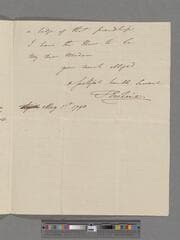 a pledge of that friendship
I have the Honor to be
My dear Madam
your much obliged
& faithful humble Servant
May 1st 1790